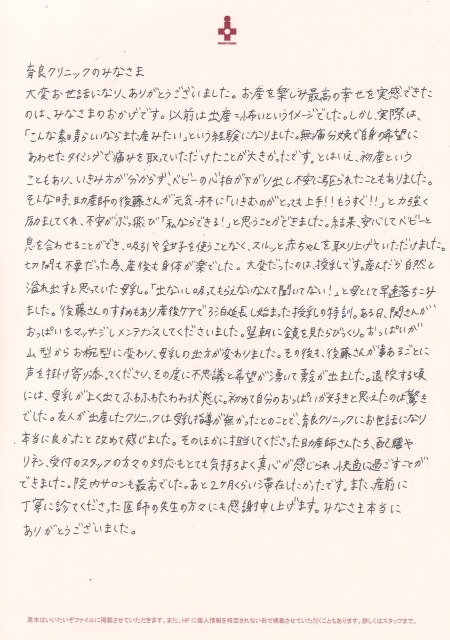 奈良クリニックのみなさま
大変お世話になり、ありがとうございました。お産を楽しみ最高の幸せを実感できた
のは、みなさまのおかげです。以前は出産=怖いというイメージでした。しかし、実際は、
「こんな素晴らしいならまた産みたい」という経験になりました。無痛分娩で自身の希望に
あわせたタイミングで痛みを取っていただけたことが大きかったです。とはいえ、初産という
こともあり、いきみ方が分からず、ベビーの心拍が下がり出し不安に駆られたこともありました。
そんな時、助産師の後藤さんが元気一杯に「いきむのがとっても上手!!もうすぐ!!」と力強く
励ましてくれ、不安がふっ飛び「私ならできる!」と思うことができました。結果、安心してベビーと
息を合わせることができ、吸引や鉗子を使うことなく、スルッと赤ちゃんを取り上げていただけました。
切開も不要だった為、産後も身体が楽でした。大変だったのは、授乳です。産んだら自然と
溢れ出すと思っていた母乳。「出ないし吸ってもらえないなんて聞いてない!」と母として早速落ちこみ
ました。後藤さんのすすめもあり産後ケアで3泊延長し始まった授乳の特訓。ある日、関さんが
おっぱいをマッサージしメンテナンスしてくださいました。翌朝に鏡を見たらびっくり。おっぱいが
山型からお椀型に変わり、母乳の出方が変わりました。その後も、後藤さんが事あるごとに
声を掛け寄り添ってくださり、その度に不思議と希望が湧いて勇気が出ました。退院する頃
には、母乳がよく出てふわふわたわわ状態に。初めて自分のおっぱいが好きと思えたのは驚き
でした。友人が出産したクリニックは母乳指導が無かったとのことで、奈良クリニックにお世話になり
本当に良かったと改めて感じました。そのほかに担当してくださった助産師さんたち、配膳や
リネン、受付のスタッフの方々の対応もとても気持ちよく真心が感じられ、快適に過ごすことが
できました。院内サロンも最高でした。あと2ヶ月くらい滞在したかったです。また、産前に
丁寧に診てくださった医師の先生の方々にも感謝申し上げます。みなさま本当に
ありがとうございました。
原本はいいたいぞファイルに掲載させていただきます。また、HPに個人情報を特定されない形で掲載させていただくこともあります。詳しくはスタッフまで。